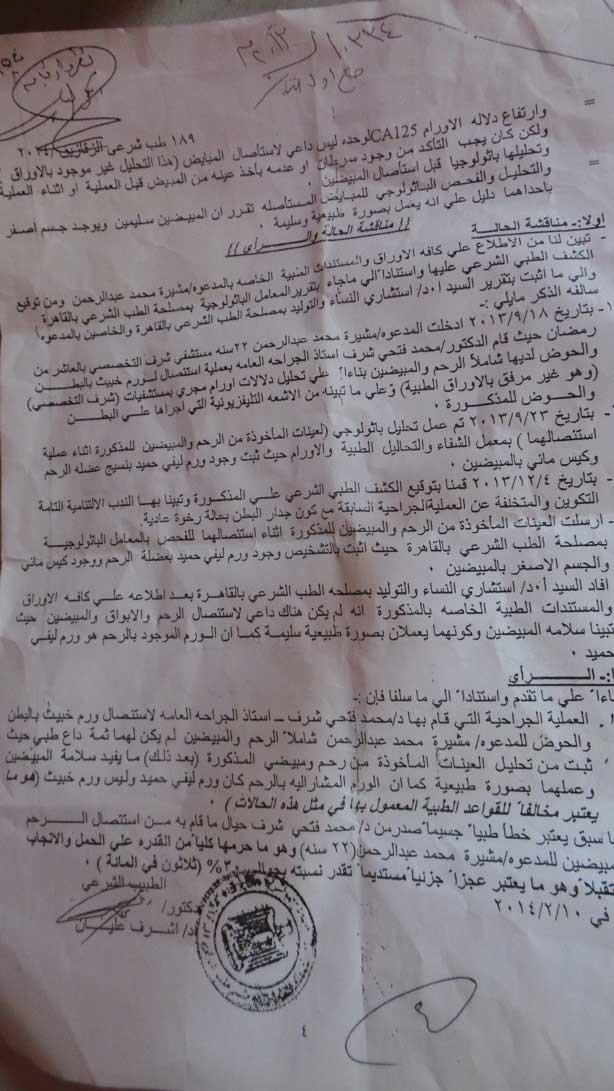 ١٠٣٣٤
١٨٩ طب شرعى الزقازيق/٢٠١٤
وارتفاع دلاله الاورام CA125 لوحده ليس داعي لاستأصال المبايض (هذا التحليل غير موجود بالاوراق)
ولكن كان يجب التأكد من وجود سرطان او عدمه بأخذ عينه من المبيض قبل العملية او اثناء العملية
وتحليلها باثولوجيا قبل استأصال المبيضين .
والتحليل والفحص الباثولوجي للمبايض المستأصله تقرر ان المبيضين سليمين ويوجد جسم اصفر
بأحداهما دليل علي انه يعمل بصورة طبيعية وسليمة .
// مناقشة الحالة والـــرأي //
اولا:- مناقشة الحالة
- تبين لنا من الاطلاع علي كافه الاوراق والمستندات الطبية الخاصه بالمدعوه/مشيرة محمد عبدالرحمن ومن توقيع
الكشف الطبي الشرعي عليها واستنادا الي ماجاء بتقرير المعامل الباثولوجية بمصلحة الطب الشرعي بالقاهرة
والي ما اثبت بتقرير السيد ا٠د/ استشاري النساء والتوليد بمصلحة الطب الشرعي بالقاهرة والخاصين بالمدعوه
سالفه الذكر مايلي :-
١- بتاريخ ٢٠١٣/٩/١٨ ادخلت المدعوه/مشيرة محمد عبدالرحمن ٢٢سنه مستشفي شرف التخصصي بالعاشر من
رمضان حيث قام الدكتور/محمد فتحي شرف استاذ الجراحه العامه بعملية استئصال لورم خبيث بالبطن
والحوض لديها شاملاً الرحم والمبيضين بناءاً علي تحليل دلالات اورام مجري بمستشفيات (شرف التخصصي)
(وهو غير مرفق بالاوراق الطبية) وعلي ما تبينه من الاشعه التليفزيونية التي اجراها علي البطن
والحوض للمذكورة .
- بتاريخ ٢٠١٣/٩/٢٣ تم عمل تحليل باثولوجي (لعينات المأخوذة من الرحم والمبيضين للمذكورة اثناء عملية
استئصالهما) بمعمل الشفاء والتحاليل الطبية والاورام حيث ثبت وجود ورم ليفي حميد بنسيج عضله الرحم
وكيس مائي بالمبيضين .
- بتاريخ ٢٠١٣/١٢/٤ قمنا بتوقيع الكشف الطبي الشرعي علي المذكورة وتبينا بها الندب الالتئامية التامة
التكوين والمتخلفة عن العملية الجراحية السابقة مع كون جدار البطن بحالة رخوة عادية.
- ارسلت العينات المأخوذة من الرحم والمبيضين للمذكورة اثناء استئصالهما للفحص بالمعامل الباثولوجية
بمصلحة الطب الشرعي بالقاهرة حيث اثبت بالتشخيص وجود ورم ليفي حميد بعضلة الرحم ووجود كيس مائي
والجسم الاصفر بالمبيضين .
أفاد السيد أ٠د/ استشاري النساء والتوليد بمصلحه الطب الشرعي بالقاهرة بعد اطلاعه علي كافه الاوراق
والمستندات الطبية الخاصه بالمذكورة انه لم يكن هناك داعي لاستئصال الرحم والابواق والمبيضين حيث
تبينا سلامه المبيضين وكونهما يعملان بصورة طبيعية سليمة كما ان الورم الموجود بالرحم هو ورم ليفي
حميد .
:- الـــــرأي
ناءاً علي ما تقدم واستناداً الي ما سلفا فإن :-
العملية الجراحية التي قام بها د/محمد فتحي شرف – استاذ الجراحه العامه لاستئصال ورم خبيث بالبطن
والحوض للمدعوه/ مشيرة محمد عبدالرحمن شاملاً الرحم والمبيضين لم يكن لهما ثمة داع طبي حيث
ثبت من تحليل العينات المأخوذة من رحم ومبيضي المذكورة (بعد ذلك) ما يفيد سلامة المبيضين
وعملهما بصورة طبيعية كما ان الورم المشاراليه بالرحم كان ورم ليفي حميد وليس ورم خبيث (هو ما
يعتبر مخالفاً للقواعد الطبية المعمول بها في مثل هذه الحالات) .
ا سبق يعتبر خطأ طبياً جسيماً صدر من د/ محمد فتحي شرف حيال ما قام به من استئصال الرحم
مبيضين للمدعوه/مشيرة محمد عبدالرحمن (٢٢ سنه) وهو ما حرمها كلياً من القدره علي الحمل والانجاب
تقبلاً وهو ما يعتبر عجزاً جزئياً مستديماً تقدر نسبته بحوالي ٣٠% (ثلاثون في المائة) .
في ٢٠١٤/٢/١٠
الطبيب الشرعي
دكتور/
د/ اشرف عليان
٤
٤